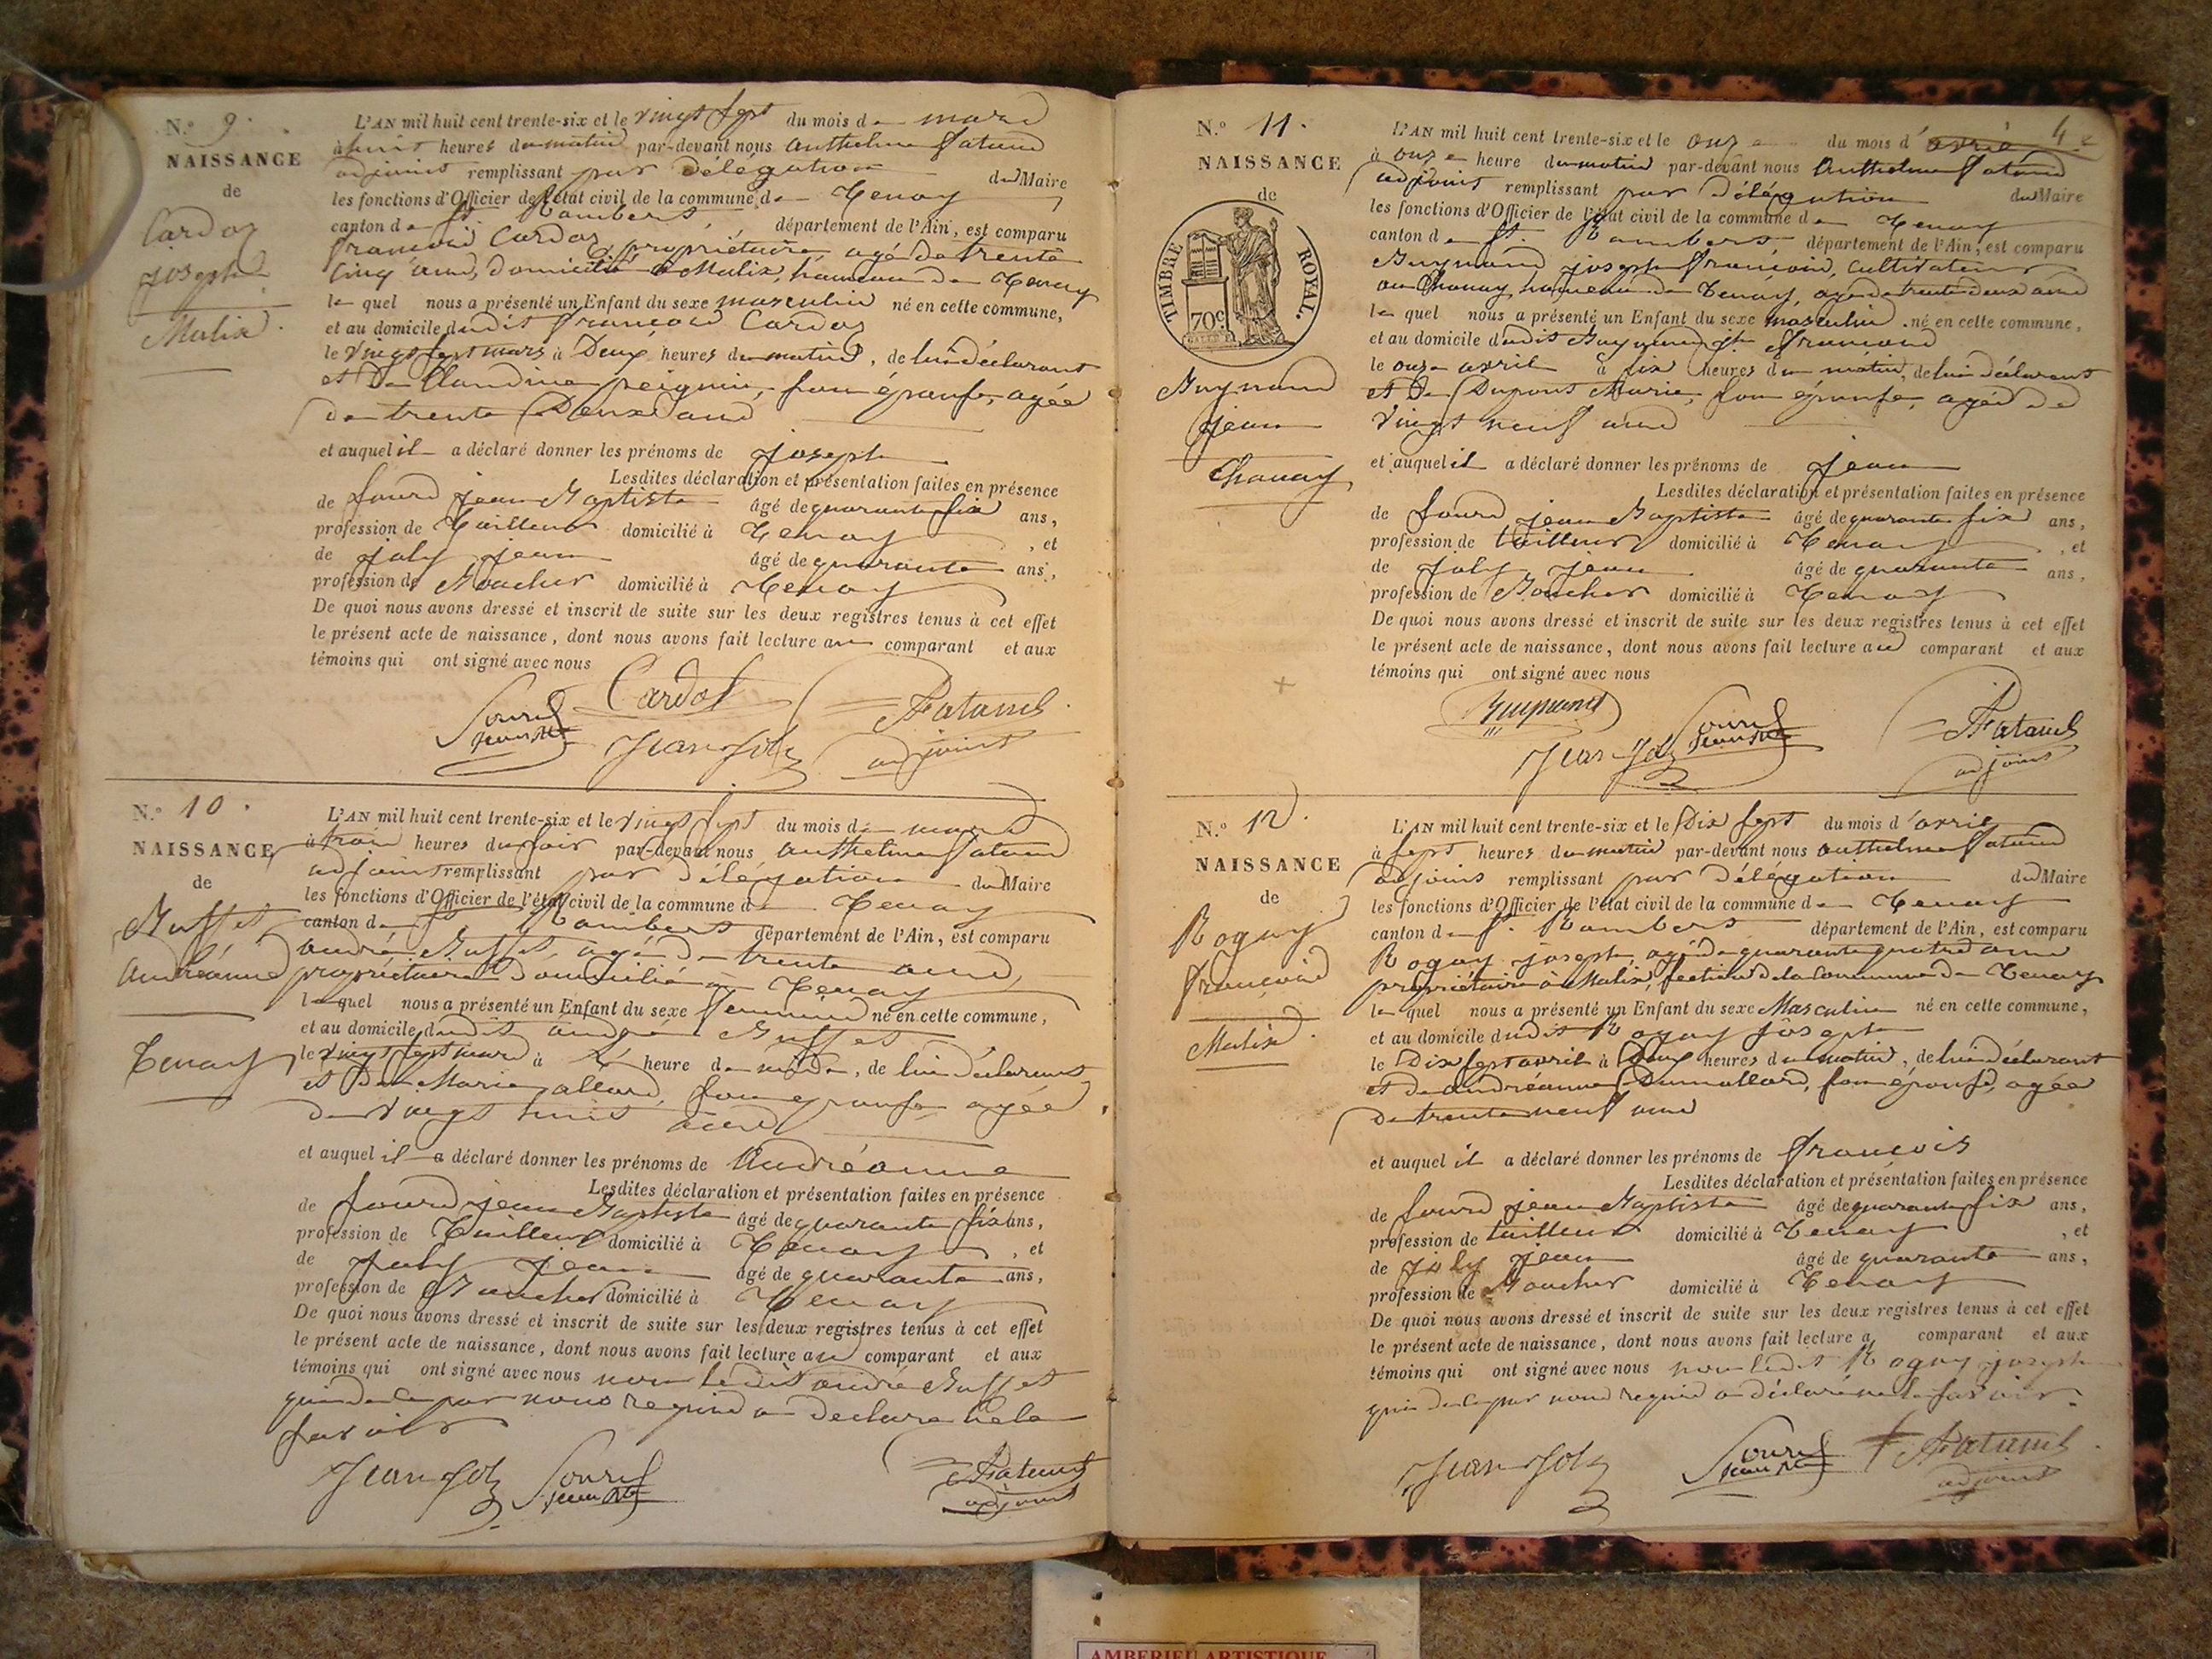 N.o 9.
NAISSANCE
de
Cardot
joseph
Malix.
L'AN mil huit cent trente-six et le vingt sept du mois de mars
à huit heures du matin par-devant nous Anthelme Fatami
adjoint remplissant par délégation du Maire
les fonctions d'Officier de l'état civil de la commune de Tenay
canton de St. Rambert département de l'Ain, est comparu
françois Cardot, propriétaire agé de trente
cinq ans, domicilié à Malix, hameau de Tenay
le quel nous a présenté un Enfant du sexe masculin né en cette commune,
et au domicile dudit françois Cardot
le vingt sept mars à Deux heures du matin, de lui déclarant
et de Claudine peignin, son épouse, agée
de trente Deux ans
et auquel il a déclaré donner les prénoms de joseph
Lesdites déclaration et présentation faites en présence
de jean Baptiste âgé de quarante six ans,
profession de Tailleur domicilié à Tenay, et
de joly jean âgé de quarante ans,
profession de Boucher domicilié à Tenay
De quoi nous avons dressé et inscrit de suite sur les deux registres tenus à cet effet
le présent acte de naissance, dont nous avons fait lecture au comparant et aux
témoins qui ont signé avec nous
Cardot
Jean Joly
adjoint
N.o 10.
NAISSANCE
de
Buffet
Andréanne
Tenay
L'AN mil huit cent trente-six et le vingt sept du mois de mars
à trois heures du soir par-devant nous Anthelme
adjoint remplissant par délégation du Maire
les fonctions d'Officier de l'état civil de la commune de Tenay
canton de St Rambert département de l'Ain, est comparu
André Buffet, agé de trente ans,
propriétaire domicilié à Tenay
le quel nous a présenté un Enfant du sexe féminin né en cette commune,
et au domicile dudit andré Buffet
le vingt sept mars à heure de midi, de lui déclarant
et de Marie allard, son épouse agée
de vingt huit ans
et auquel il a déclaré donner les prénoms de Andréanne
Lesdites déclaration et présentation faites en présence
de jean Baptiste âgé de quarante six ans,
profession de Tailleur domicilié à Tenay, et
de Joly Jean âgé de quarante ans,
profession de Boucher domicilié à Tenay
De quoi nous avons dressé et inscrit de suite sur les deux registres tenus à cet effet
le présent acte de naissance, dont nous avons fait lecture au comparant et aux
témoins qui ont signé avec nous non ledit andré Buffet
qui de ce par nous requis a déclaré ne le
savoir
Jean Joly
adjoint
4
N.o 11.
NAISSANCE
de
TIMBRE ROYAL.
70c
Guynand
jean
Chanay
L'AN mil huit cent trente-six et le onze du mois d'avril
à onze heure du matin par-devant nous Anthelme
adjoint remplissant par délégation du Maire
les fonctions d'Officier de l'état civil de la commune de Tenay
canton de St. Rambert département de l'Ain, est comparu
Guynand joseph françois, cultivateur
au Chanay, hameau de Tenay, agé de trente deux ans
le quel nous a présenté un Enfant du sexe masculin né en cette commune,
et au domicile dudit Guynand jh. françois
le onze avril à six heures du matin, de lui déclarant
et de Dupont Marie, son épouse, agée de
vingt neuf ans
et auquel il a déclaré donner les prénoms de jean
Lesdites déclaration et présentation faites en présence
de jean Baptiste âgé de quarante six ans,
profession de tailleur domicilié à Tenay, et
de Joly jean âgé de quarante ans,
profession de Boucher domicilié à Tenay
De quoi nous avons dressé et inscrit de suite sur les deux registres tenus à cet effet
le présent acte de naissance, dont nous avons fait lecture au comparant et aux
témoins qui ont signé avec nous
Guynand
Jean Joly
adjoint
N.o 12.
NAISSANCE
de
Roguy
françois
Malix.
L'AN mil huit cent trente-six et le Dix sept du mois d'avril
à sept heures du matin par-devant nous Anthelme
adjoint remplissant par délégation du Maire
les fonctions d'Officier de l'état civil de la commune de Tenay
canton de St. Rambert département de l'Ain, est comparu
Roguy joseph, agé de quarante quatre ans
propriétaire à Malix, section de la commune de Tenay
le quel nous a présenté un Enfant du sexe Masculin né en cette commune,
et au domicile dudit Roguy joseph
le Dix sept avril à heures du matin, de lui déclarant
et de andréanne Dumollard, son épouse, agée
de trente neuf ans
et auquel il a déclaré donner les prénoms de françois
Lesdites déclaration et présentation faites en présence
de jean Baptiste âgé de quarante six ans,
profession de tailleur domicilié à Tenay, et
de joly jean âgé de quarante ans,
profession de Boucher domicilié à Tenay
De quoi nous avons dressé et inscrit de suite sur les deux registres tenus à cet effet
le présent acte de naissance, dont nous avons fait lecture a comparant et aux
témoins qui ont signé avec nous non ledit Roguy joseph
qui de ce par nous requis a déclaré ne le savoir.
Jean Joly
adjoint
AMBERIEU ARTISTIQUE